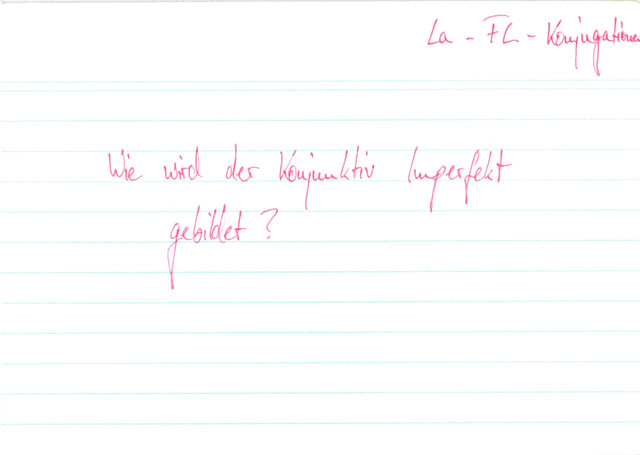 La - FL - Konjugationen
Wie wird der Konjunktiv Imperfekt
gebildet?